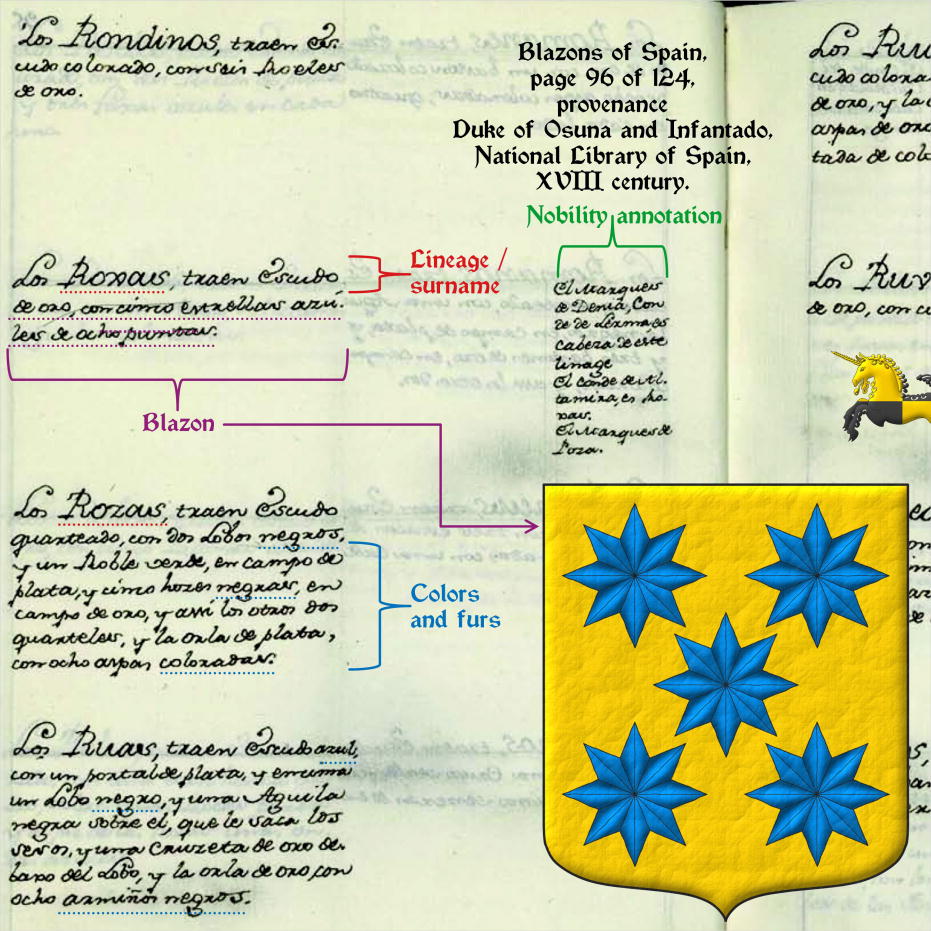 Los Rondinos, traen Es-
cudo colorado, con seis Roeles
de oro.
Blazons of Spain,
page 96 of 124,
provenance
Duke of Osuna and Infantado,
National Library of Spain,
XVIII century.
Nobility annotation
Los Roxas, traen Escudo
de oro, con cinco estrellas azu-
les de ocho puntas.
Lineage /
surname
El Marques
de Denia, Con
de de Lerma es
cabeza de este
linage
El conde de Al-
tamira, es Ro-
xas.
El Marques de
Poza.
Blazon
Los Rozas, traen Escudo
quarteado, con dos Lobos negros,
y un Roble verde, en campo de
plata, y cinco hozes negras, en
campo de oro, y assi los otros dos
quarteles, y la orla de plata,
con ocho aspas coloradas.
Colors
and furs
Los Ruas, traen Escudo azul,
con un portal de plata, y encima
un Lobo negro, y una Aguila
negra sobre el, que le saca los
sesos, y una Cruzeta de oro de-
baxo del Lobo, y la orla de oro con
ocho armiños negros.
Los
cudo
de oro, y la
aspas de oro
tada de
Los
de oro, con